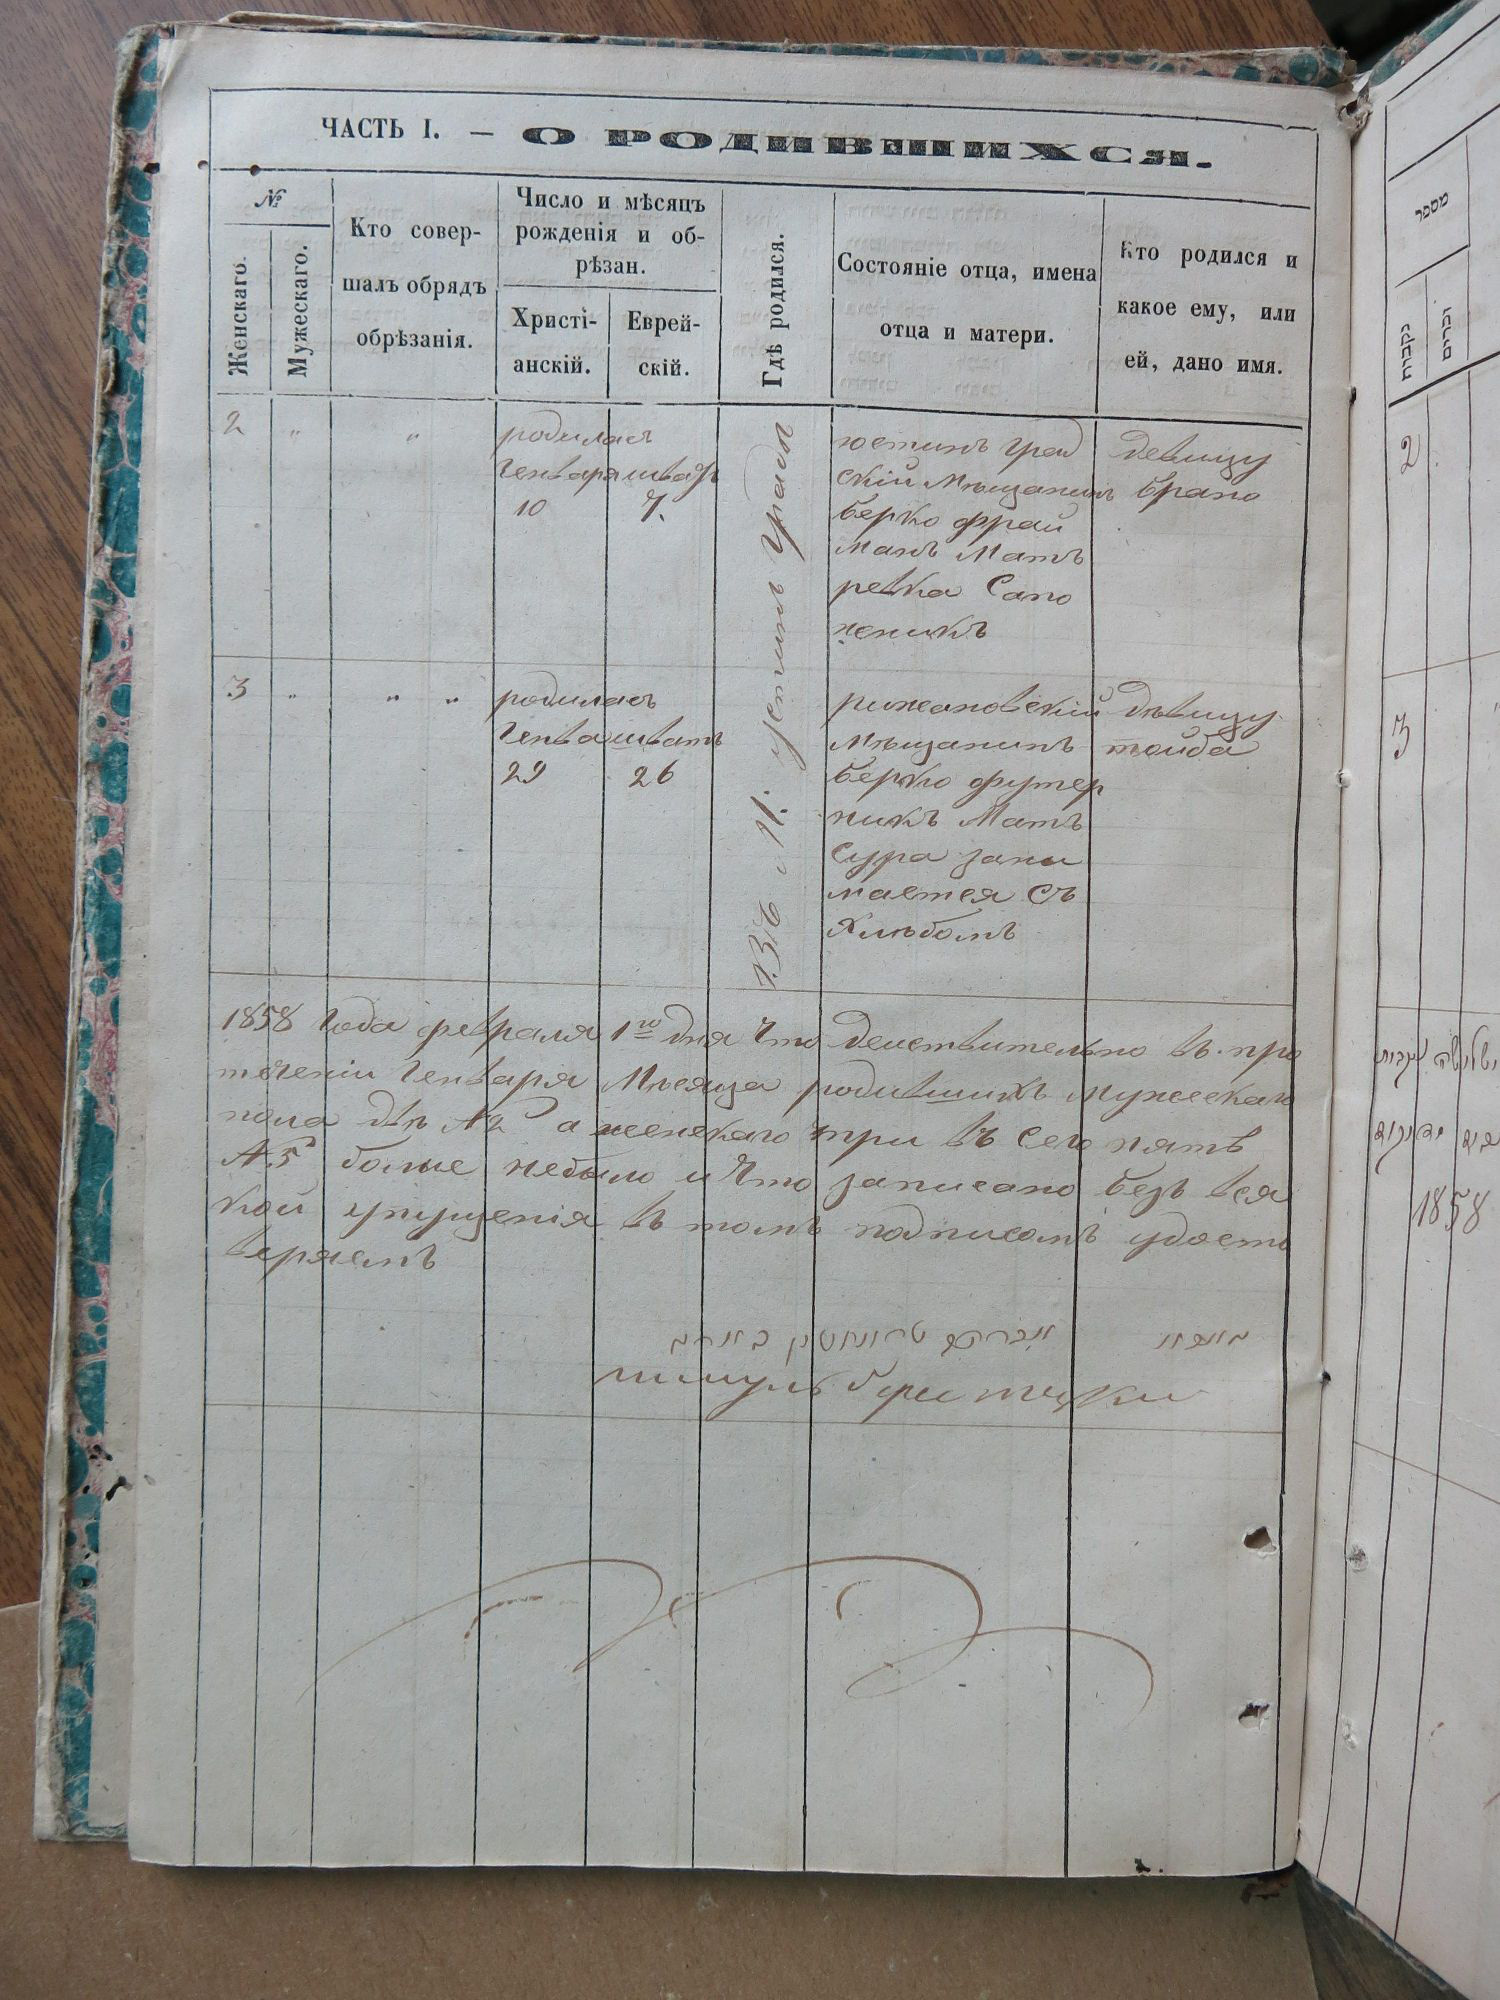 ЧАСТЬ I. — О РОДИВШИХСЯ.
№
Женскаго.
Мужескаго.
Кто совер-
шалъ обрядъ
обрѣзанія.
Число и мѣсяцъ
рожденія и об-
рѣзан.
Христі-
анскій.
Еврей-
скій.
Гдѣ родился.
Состояніе отца, имена
отца и матери.
Кто родился и
какое ему, или
ей, дано имя.
2 " "
родилась
Генваря шватъ
10 7.
юстинъ град
скій Мѣщанинъ
берко фрай
манъ Мать
ревка Сапо
жникъ
девицу
брано
3 " " "
родилась
Генва шватъ
29 26
рижановскій
Мѣщанинъ
берко футер
никъ Мать
сура зани
мается съ
Хлѣбомъ
дѣвицу
тойба
въ М. устинъ градъ
1858 года февраля 1го дня Что действительно въ про
течении Генваря Месяца родившихъ мужескаго
пола двѣ №2 а женскаго три въ сего пять
№5 более небыло и Что записано безъ вся
кой упущенія въ томъ подписомъ удосто
веряемъ
מספר
נקבות
זכרים
2
3
1858